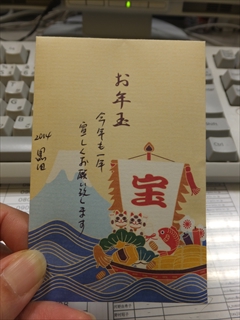 お年玉
今年も一年
宜しくお願い致します
2014
宝